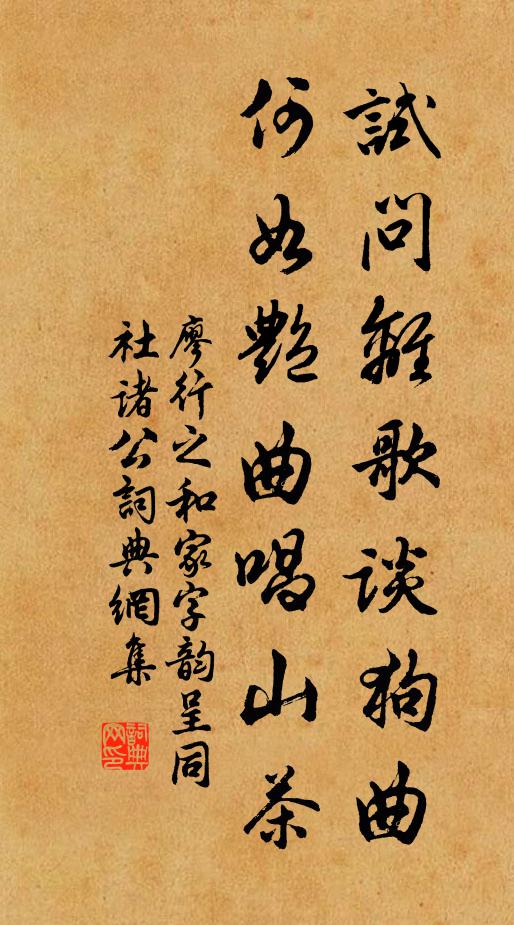 試問離歌談狗曲
何如艷曲唱山茶
廖行之和家字韵呈同
社诸公詞典網集
詞典網印